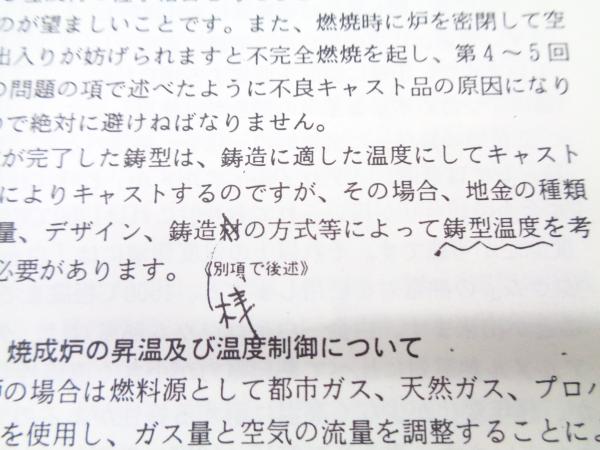 のが望ましいことです。また、燃焼時に炉を密閉して空
出入りが妨げられますと不完全燃焼を起し、第4〜5回
の問題の項で述べたように不良キャスト品の原因になり
ので絶対に避けねばなりません。
が完了した鋳型は、鋳造に適した温度にしてキャスト
によりキャストするのですが、その場合、地金の種類
量、デザイン、鋳造材の方式等によって鋳型温度を考
必要があります。《別項で後述》
焼成炉の昇温及び温度制御について
の場合は燃料源として都市ガス、天然ガス、プロパ
を使用し、ガス量と空気の流量を調整することによ